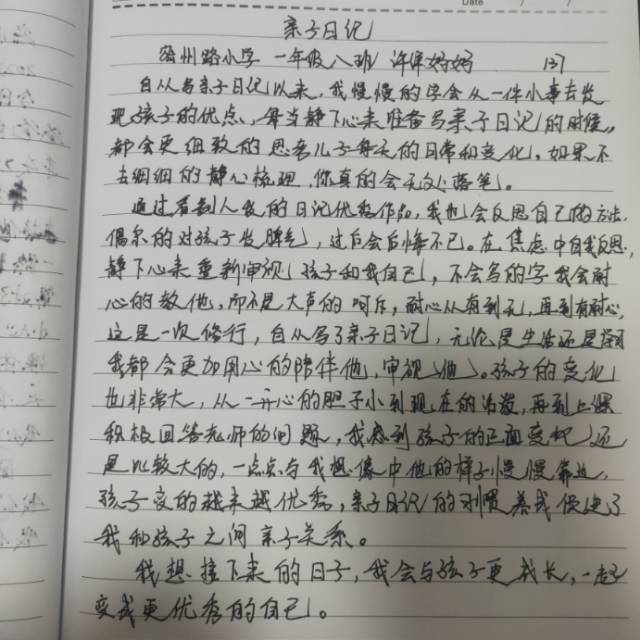 Date / /
亲子日记
宿州路小学 一年级八班 许倬妈妈 137
自从写亲子日记以来,我慢慢的学会从一件小事去发
现孩子的优点,每当静下心来准备写亲子日记的时候,
都会更细致的思考儿子每天的日常和变化。如果不
去细细的静心梳理,你真的会无从落笔。
通过看到人家的日记优秀作品,我也会反思自己的方法,
偶尔的对孩子发脾气,过后会后悔不已。在焦虑中自我反思,
静下心来重新审视孩子和我自己,不会写的字我会耐
心的教他,而不是大声的呵斥,耐心从有到无,再到有耐心,
这是一次修行,自从写了亲子日记,无论是生活还是学习
我都会更加用心的陪伴他,审视他。孩子的变化
也非常大,从一开心的胆子小到现在的活泼,再到上课
积极回答老师的问题,我感到孩子的正面变化还
是比较大的,一点点与我想像中他的样子慢慢靠近,
孩子变的越来越优秀,亲子日记的习惯养成促进了
我和孩子之间亲子关系。
我想接下来的日子,我会与孩子更成长,一起
变成更优秀的自己。